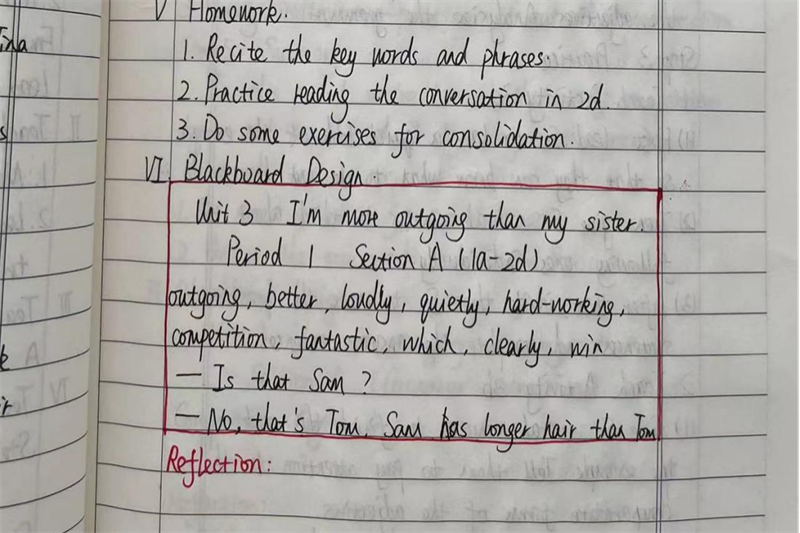 V Homework.
1. Recite the key words and phrases.
2. Practice reading the conversation in 2d.
3. Do some exercises for consolidation.
VI. Blackboard Design.
Unit 3 I'm more outgoing than my sister.
Period 1 Section A (1a-2d)
outgoing, better, loudly, quietly, hard-working,
competition, fantastic, which, clearly, win
— Is that Sam?
— No, that's Tom. Sam has longer hair than Tom
Reflection: